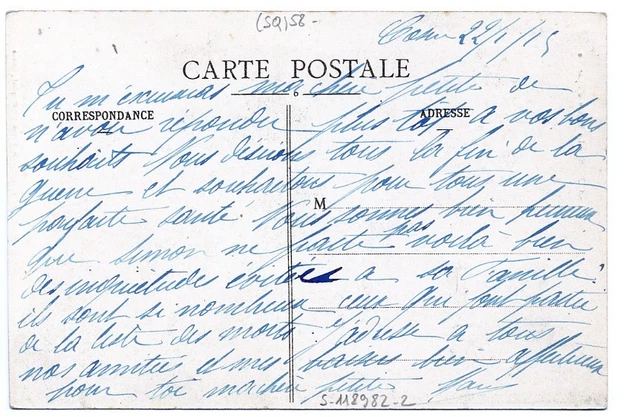 (SQ) 58 -
22/1/15
CARTE POSTALE
CORRESPONDANCE
ADRESSE
M
Tu m'excuseras ma chère petite de
n'avoir répondu plus tôt à vos bons
souhaits Nous désirons tous la fin de la
guerre et souhaitons pour tous une
parfaite santé Nous sommes bien heureux
que Simon ne parte pas voilà bien
des inquiétudes évitées à sa famille.
ils sont si nombreux ceux qui font partie
de la liste des morts. J'adresse à tous
nos amitiés et mes baisers bien affectueux
pour toi ma chère petite
S-118982-2